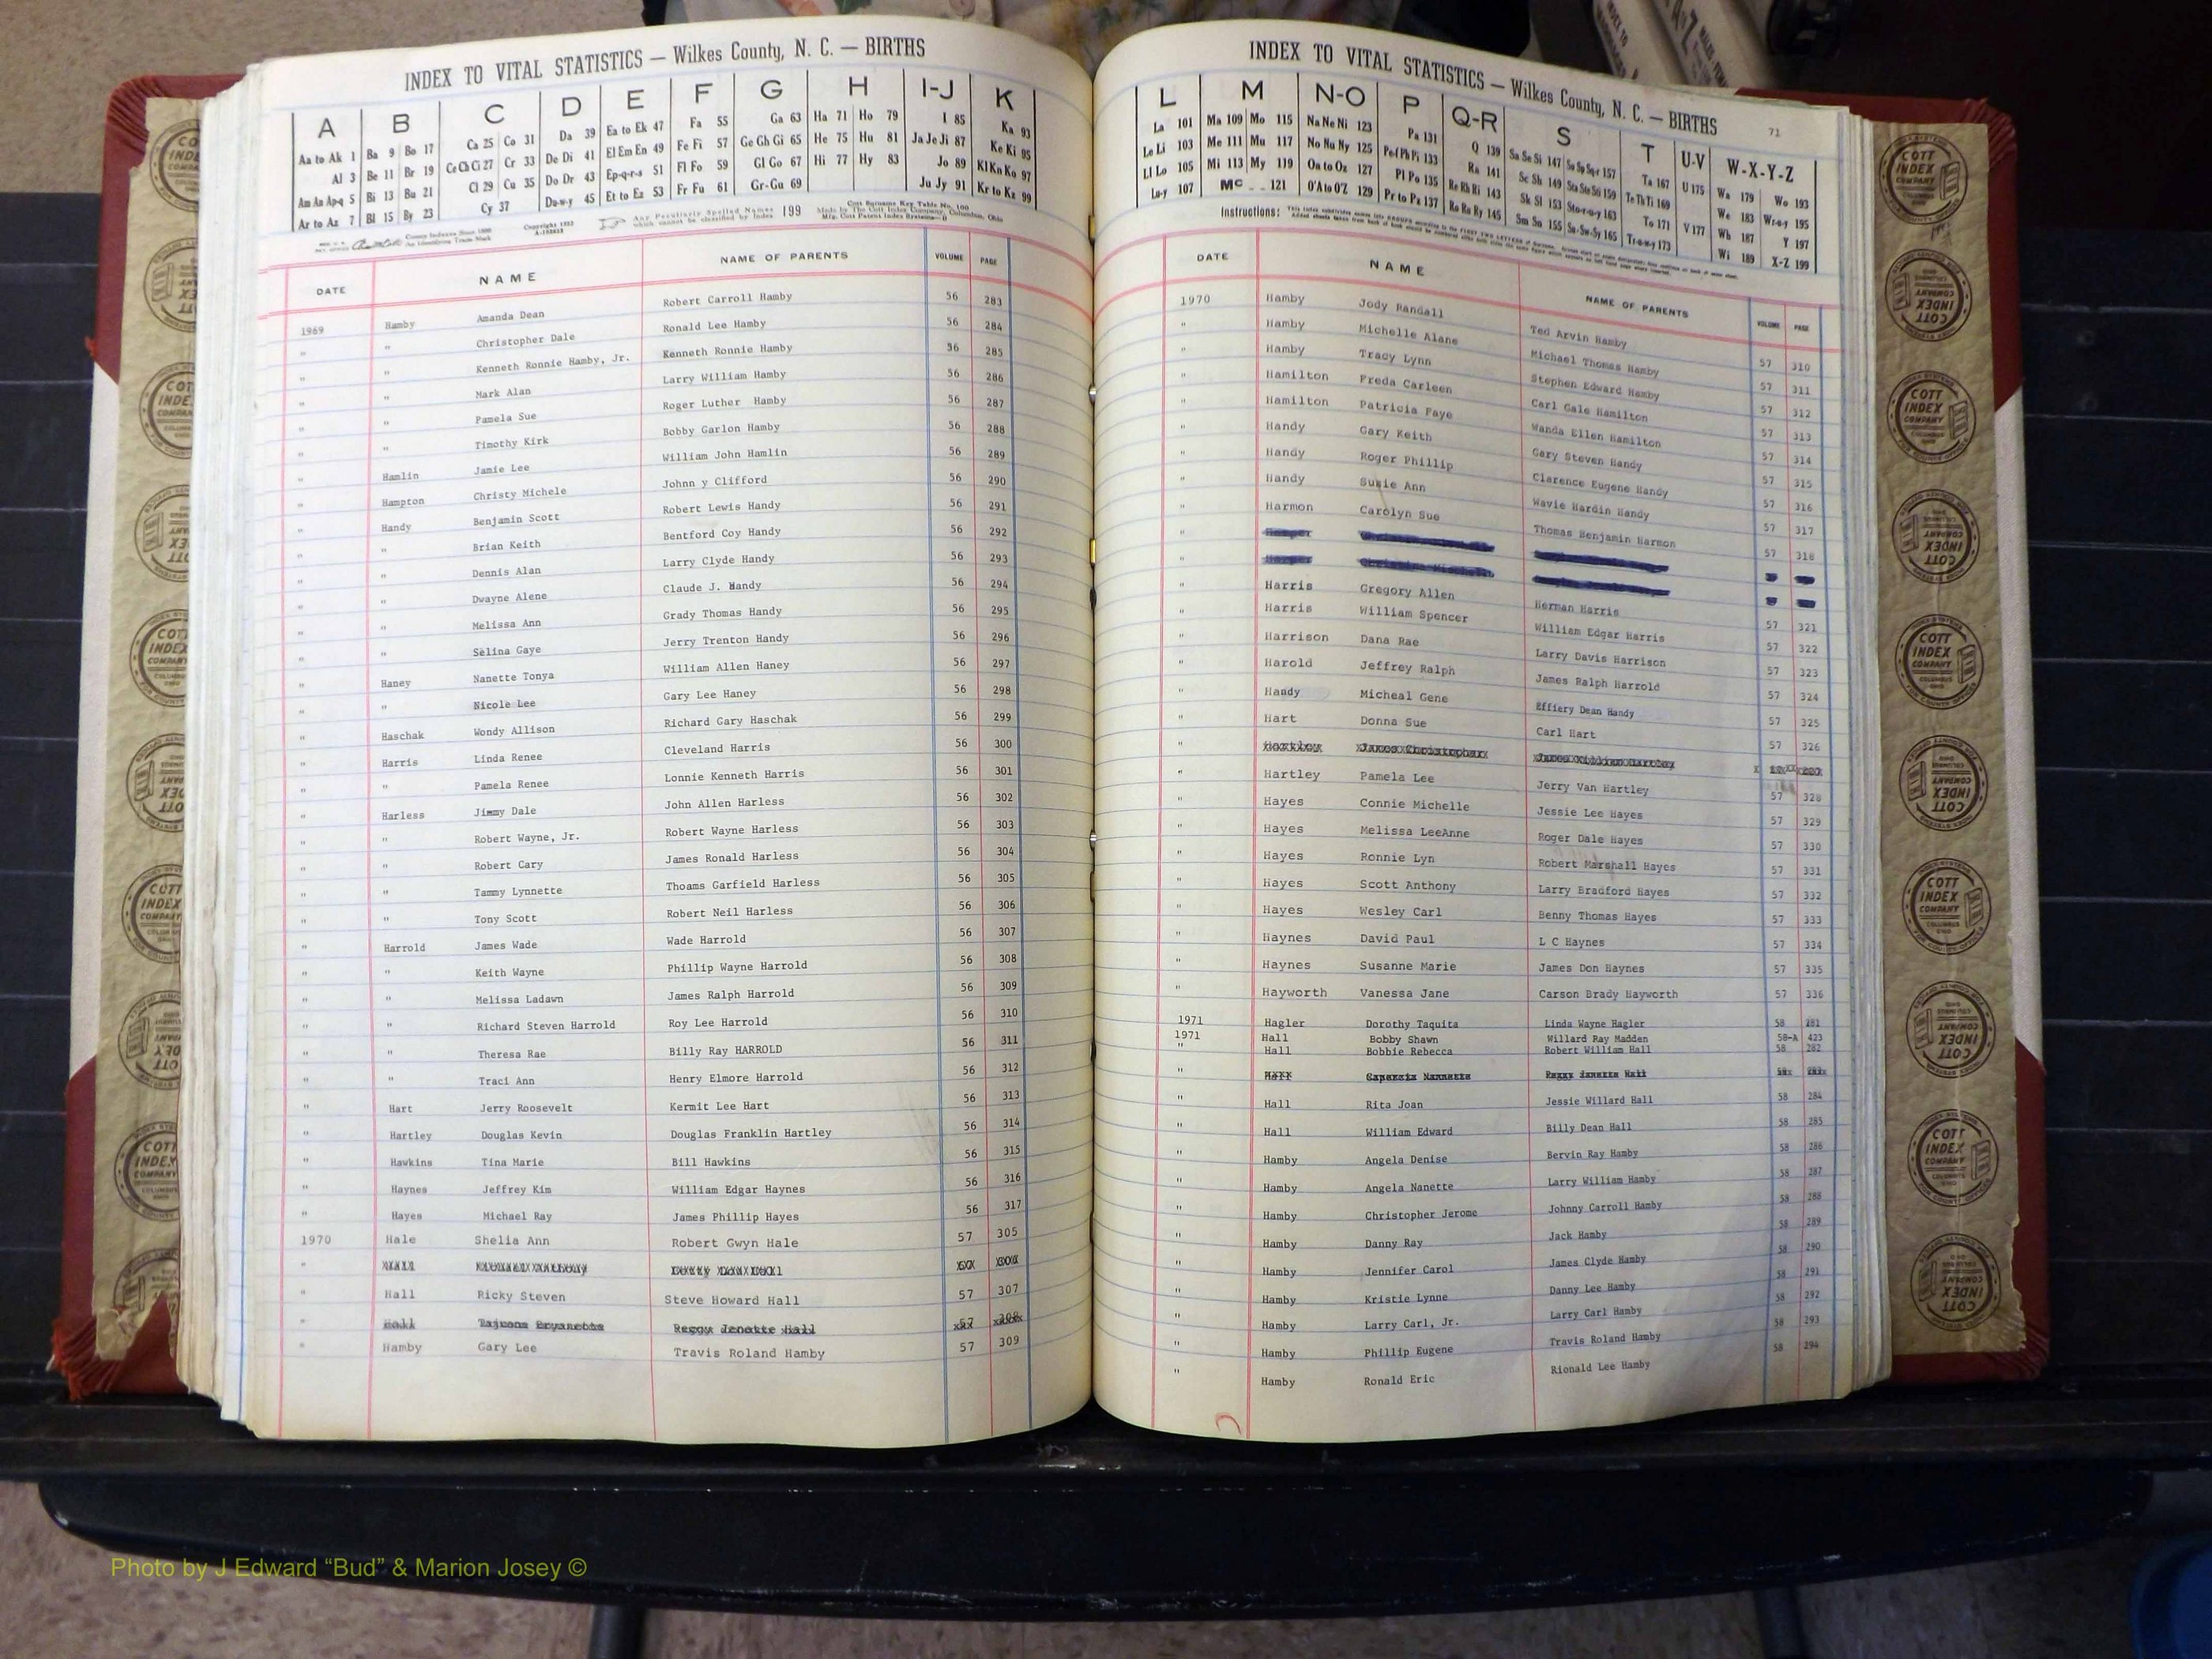 INDEX TO VITAL STATISTICS — Wilkes County, N. C. — BIRTHS
A B C D E F G H I-J K
Aa to Ak 1 Ba 9 Bo 17 Ca 25 Co 31 Da 39 Ea to Ek 47 Fa 55 Ga 63 Ha 71 Ho 79 I 85 Ka 93
Al 3 Be 11 Br 19 Ce Ch Ci 27 Cr 33 De Di 41 El Em En 49 Fe Fi 57 Ge Gh Gi 65 He 75 Hu 81 Ja Je Ji 87 Ke Ki 95
Am An Ap-q 5 Bi 13 Bu 21 Cl 29 Cu 35 Do Dr 43 Ep-q-r-s 51 Fl Fo 59 Gl Go 67 Hi 77 Hy 83 Jo 89 Kl Kn Ko 97
Ar to Az 7 Bl 15 By 23 Cy 37 Du-w-y 45 Et to Ez 53 Fr Fu 61 Gr-Gu 69 Ju Jy 91 Kr to Kz 99
Any Peculiarly Spelled Names which cannot be classified by Index 199
DATE NAME NAME OF PARENTS VOLUME PAGE
1969 Hamby Amanda Dean Robert Carroll Hamby 56 283
" " Christopher Dale Ronald Lee Hamby 56 284
" " Kenneth Ronnie Hamby, Jr. Kenneth Ronnie Hamby 56 285
" " Mark Alan Larry William Hamby 56 286
" " Pamela Sue Roger Luther Hamby 56 287
" " Timothy Kirk Bobby Garlon Hamby 56 288
" Hamlin Jamie Lee William John Hamlin 56 289
" Hampton Christy Michele Johnn y Clifford 56 290
" Handy Benjamin Scott Robert Lewis Handy 56 291
" " Brian Keith Bentford Coy Handy 56 292
" " Dennis Alan Larry Clyde Handy 56 293
" " Dwayne Alene Claude J. Handy 56 294
" " Melissa Ann Grady Thomas Handy 56 295
" " Selina Gaye Jerry Trenton Handy 56 296
" Haney Nanette Tonya William Allen Haney 56 297
" " Nicole Lee Gary Lee Haney 56 298
" Haschak Wondy Allison Richard Gary Haschak 56 299
" Harris Linda Renee Cleveland Harris 56 300
" " Pamela Renee Lonnie Kenneth Harris 56 301
" Harless Jimmy Dale John Allen Harless 56 302
" " Robert Wayne, Jr. Robert Wayne Harless 56 303
" " Robert Cary James Ronald Harless 56 304
" " Tammy Lynnette Thoams Garfield Harless 56 305
" " Tony Scott Robert Neil Harless 56 306
" Harrold James Wade Wade Harrold 56 307
" " Keith Wayne Phillip Wayne Harrold 56 308
" " Melissa Ladawn James Ralph Harrold 56 309
" " Richard Steven Harrold Roy Lee Harrold 56 310
" " Theresa Rae Billy Ray HARROLD 56 311
" " Traci Ann Henry Elmore Harrold 56 312
" Hart Jerry Roosevelt Kermit Lee Hart 56 313
" Hartley Douglas Kevin Douglas Franklin Hartley 56 314
" Hawkins Tina Marie Bill Hawkins 56 315
" Haynes Jeffrey Kim William Edgar Haynes 56 316
" Hayes Michael Ray James Phillip Hayes 56 317
1970 Hale Shelia Ann Robert Gwyn Hale 57 305
"
" Hall Ricky Steven Steve Howard Hall 57 307
" Hall Hall 57 308
" Hamby Gary Lee Travis Roland Hamby 57 309
INDEX TO VITAL STATISTICS — Wilkes County, N. C. — BIRTHS
71
L M N-O P Q-R S T U-V W-X-Y-Z
La 101 Ma 109 Mo 115 Na Ne Ni 123 Pa 131 Q 139 Sa Se Si 147 So Sp Sq-r 157 Ta 167 U 175 Wa 179 Wo 193
Le Li 103 Me 111 Mu 117 No Nu Ny 125 Pe-f Ph Pi 133 Ra 141 Sc Sh 149 Sta Ste Sti 159 Te Th Ti 169 We 183 Wr-u-y 195
Ll Lo 105 Mi 113 My 119 On to Oz 127 Pl Po 135 Re Rh Ri 143 Sk Sl 153 Sto-r-u-y 163 To 171 V 177 Wh 187 Y 197
Lu-y 107 Mc 121 O'A to O'Z 129 Pr to Pz 137 Ro Ru Ry 145 Sm Sn 155 Su-Sw-Sy 165 Tr-u-w-y 173 Wi 189 X-Z 199
Instructions:
DATE NAME NAME OF PARENTS VOLUME PAGE
1970 Hamby Jody Randall Ted Arvin Hamby 57 310
" Hamby Michelle Alane Michael Thomas Hamby 57 311
" Hamby Tracy Lynn Stephen Edward Hamby 57 312
" Hamilton Freda Carleen Carl Gale Hamilton 57 313
" Hamilton Patricia Faye Wanda Ellen Hamilton 57 314
" Handy Gary Keith Gary Steven Handy 57 315
" Handy Roger Phillip Clarence Eugene Handy 57 316
" Handy Susie Ann Wavie Hardin Handy 57 317
" Harmon Carolyn Sue Thomas Benjamin Harmon 57 318
"
"
" Harris Gregory Allen Herman Harris 57 321
" Harris William Spencer William Edgar Harris 57 322
" Harrison Dana Rae Larry Davis Harrison 57 323
" Harold Jeffrey Ralph James Ralph Harrold 57 324
" Handy Micheal Gene Effiery Dean Handy 57 325
" Hart Donna Sue Carl Hart 57 326
" Hartley James Christopher James William Hartley
" Hartley Pamela Lee Jerry Van Hartley 57 328
" Hayes Connie Michelle Jessie Lee Hayes 57 329
" Hayes Melissa LeeAnne Roger Dale Hayes 57 330
" Hayes Ronnie Lyn Robert Marshall Hayes 57 331
" Hayes Scott Anthony Larry Bradford Hayes 57 332
" Hayes Wesley Carl Benny Thomas Hayes 57 333
" Haynes David Paul L C Haynes 57 334
" Haynes Susanne Marie James Don Haynes 57 335
" Hayworth Vanessa Jane Carson Brady Hayworth 57 336
1971 Hagler Dorothy Taquita Linda Wayne Hagler 58 281
1971 Hall Bobby Shawn Willard Ray Madden 58-A 423
" Hall Bobbie Rebecca Robert William Hall 58 282
" Hall
" Hall Rita Joan Jessie Willard Hall 58 284
" Hall William Edward Billy Dean Hall 58 285
" Hamby Angela Denise Bervin Ray Hamby 58 286
" Hamby Angela Nanette Larry William Hamby 58 287
" Hamby Christopher Jerome Johnny Carroll Hamby 58 288
" Hamby Danny Ray Jack Hamby 58 289
" Hamby Jennifer Carol James Clyde Hamby 58 290
" Hamby Kristie Lynne Danny Lee Hamby 58 291
" Hamby Larry Carl, Jr. Larry Carl Hamby 58 292
" Hamby Phillip Eugene Travis Roland Hamby 58 293
" Hamby Ronald Eric Rionald Lee Hamby 58 294
Photo by J Edward “Bud” & Marion Josey ©